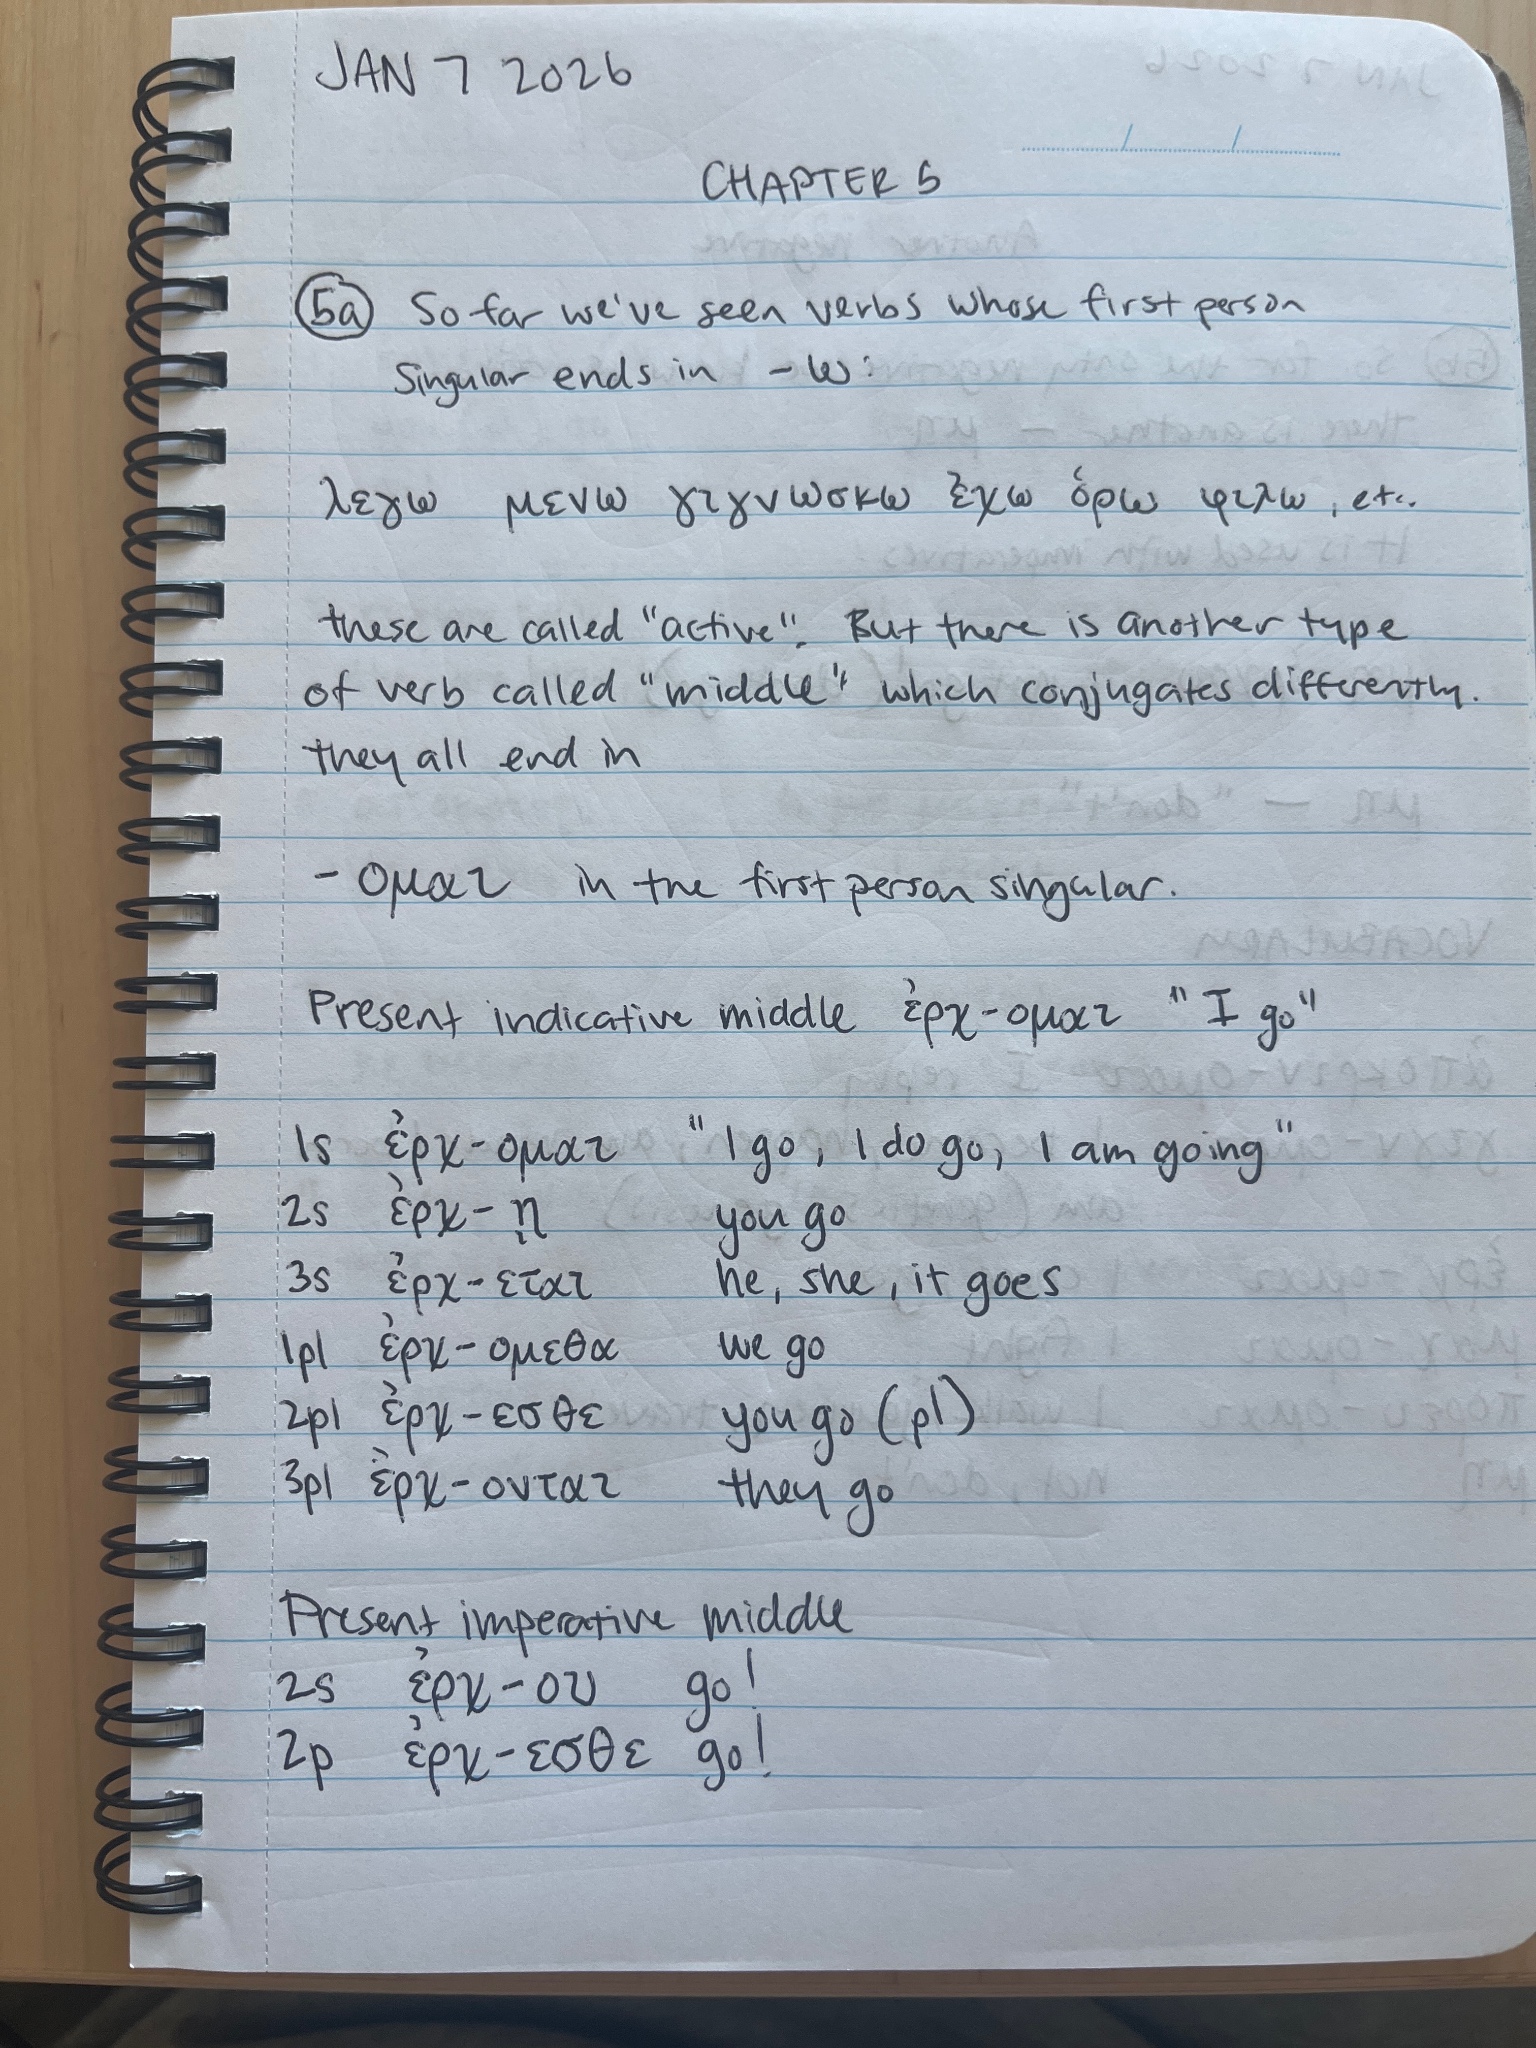 JAN 7 2026
CHAPTER 5
5a So far we've seen verbs whose first person
singular ends in -ω:
λεγω μενω γιγνωσκω ἐχω ὁρω φιλω, etc.
these are called "active". But there is another type
of verb called "middle" which conjugates differently.
they all end in
-ομαι in the first person singular.
Present indicative middle ἐρχ-ομαι "I go"
1s ἐρχ-ομαι "I go, I do go, I am going"
2s ἐρχ-ῃ you go
3s ἐρχ-εται he, she, it goes
1pl ἐρχ-ομεθα we go
2pl ἐρχ-εσθε you go (pl)
3pl ἐρχ-ονται they go
Present imperative middle
2s ἐρχ-ου go!
2p ἐρχ-εσθε go!